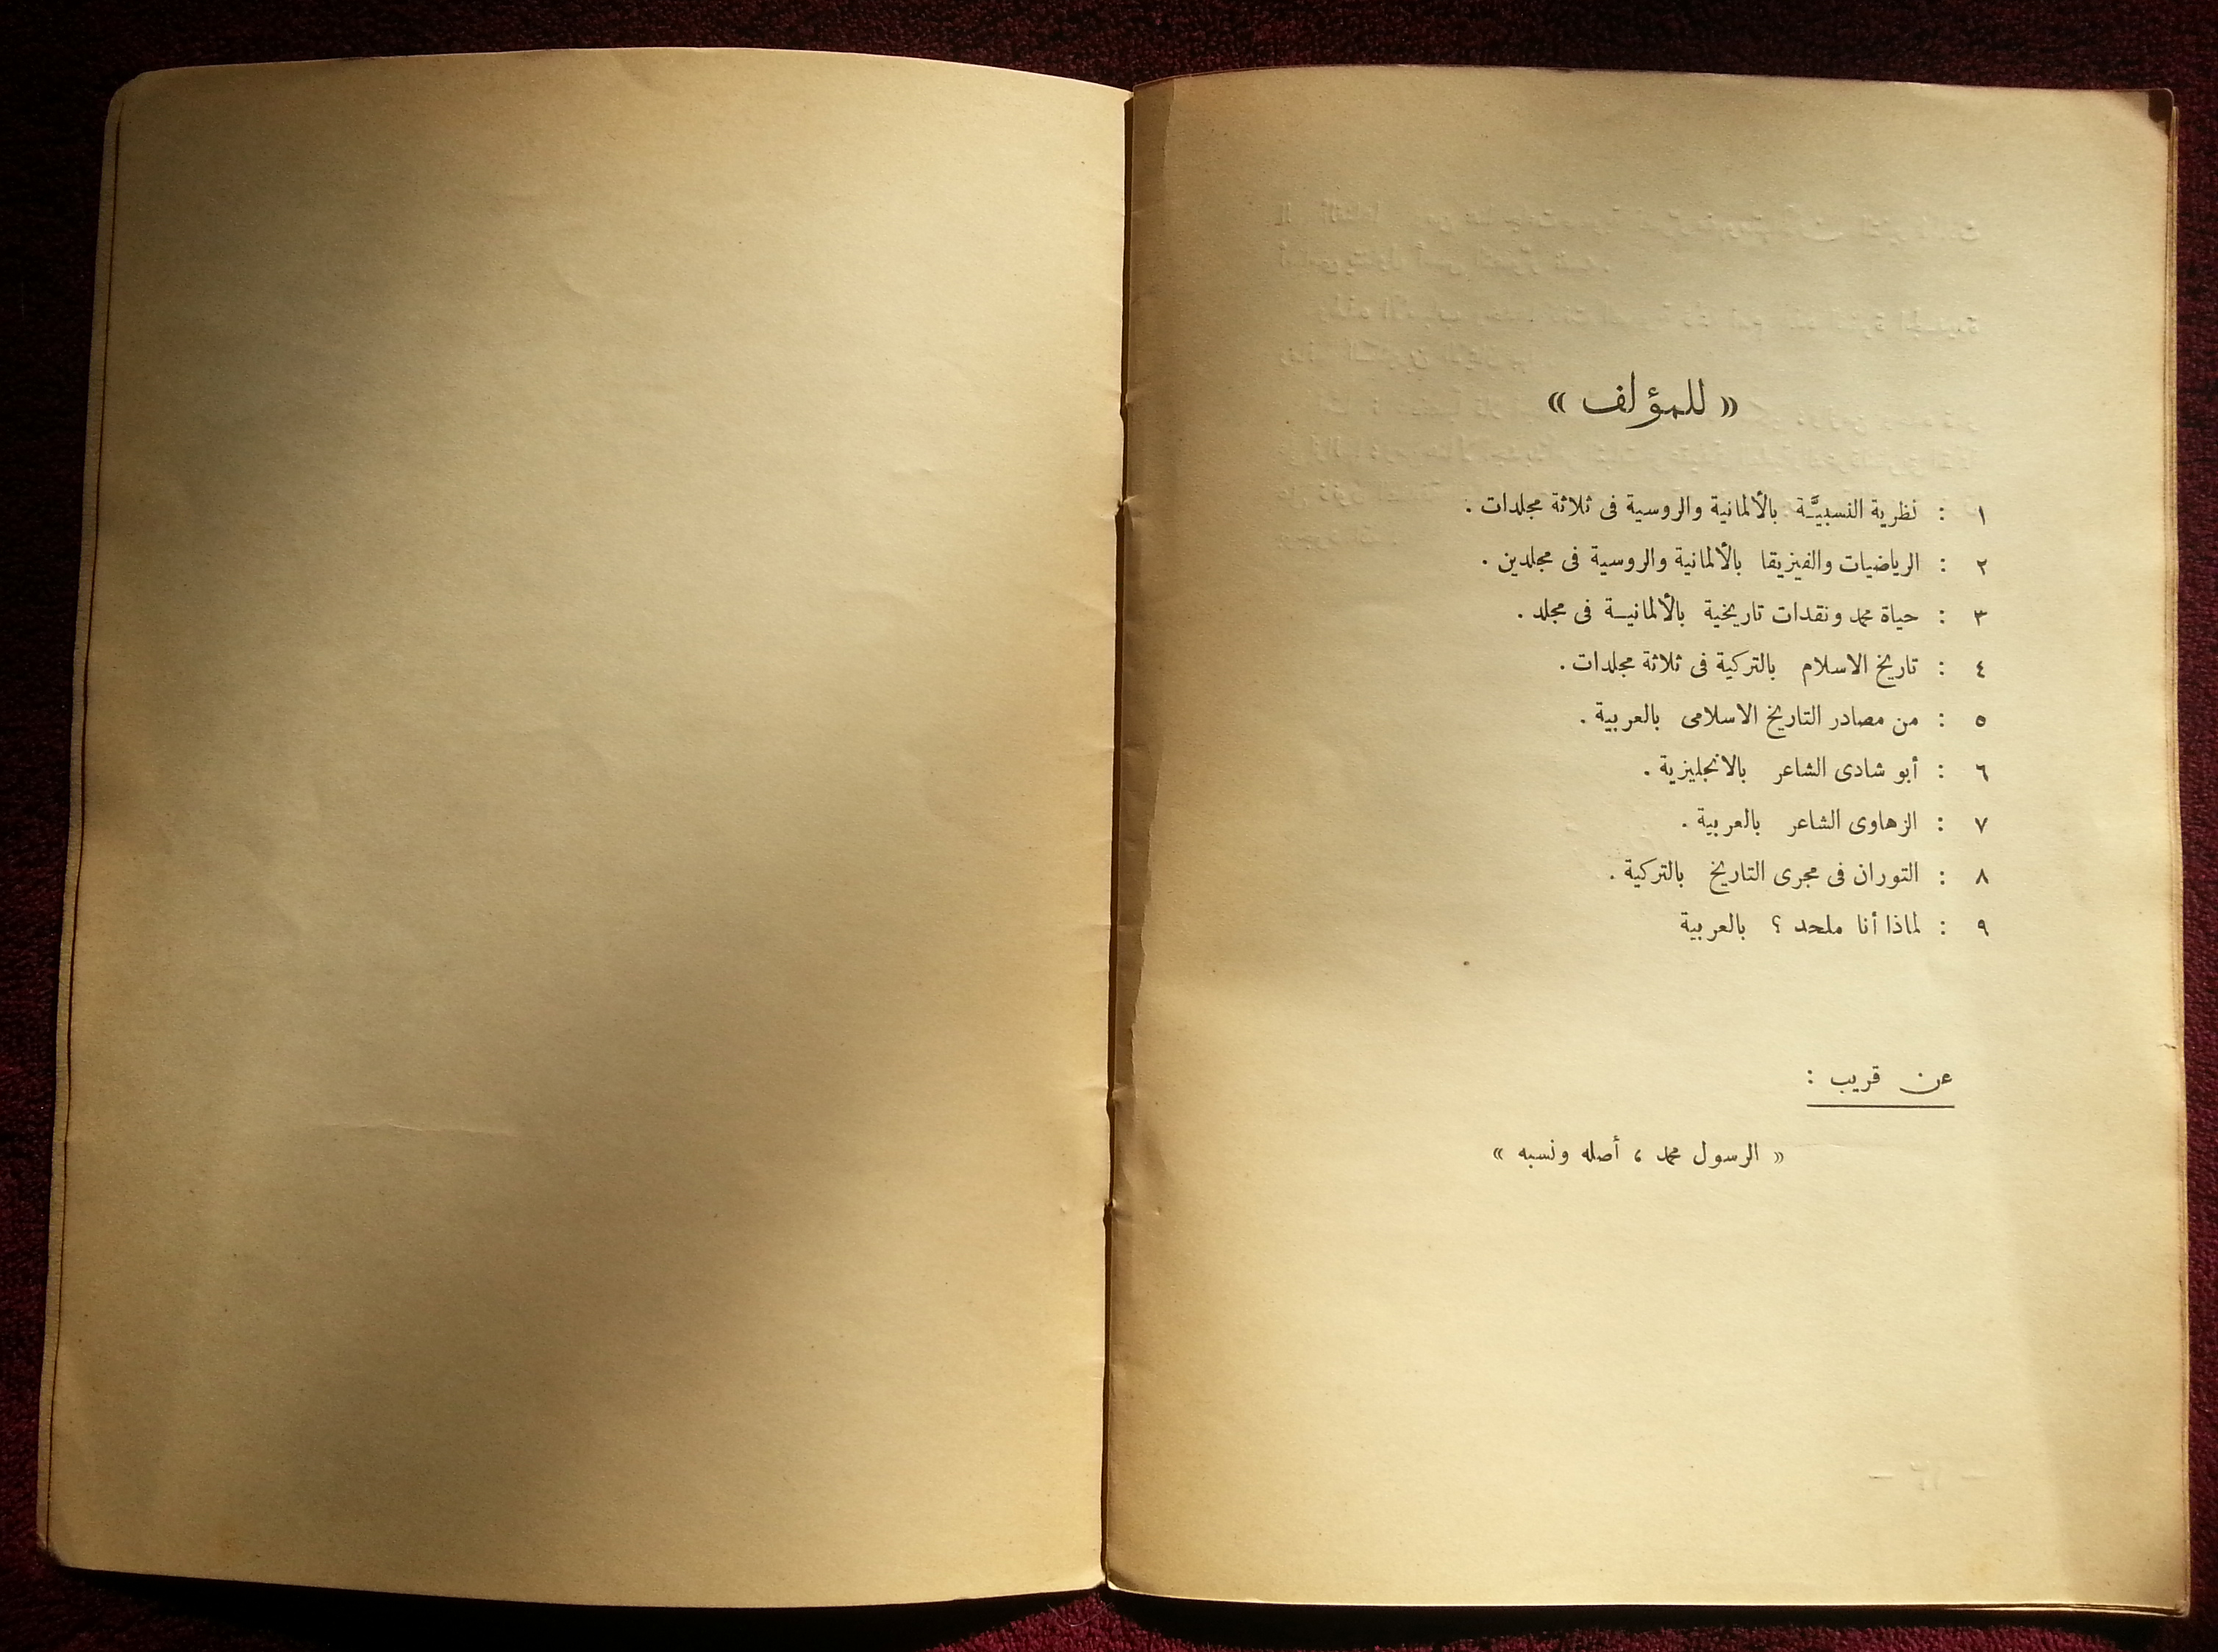 « للمؤلف »
١ : نظرية النسبيَّـة بالألمانية والروسية فى ثلاثة مجلدات .
٢ : الرياضيات والفيزيقا بالألمانية والروسية فى مجلدين .
٣ : حياة محمد ونقدات تاريخية بالألمانيـة فى مجلد .
٤ : تاريخ الاسلام بالتركية فى ثلاثة مجلدات .
٥ : من مصادر التاريخ الاسلامى بالعربية .
٦ : أبو شادى الشاعر بالانجليزية .
٧ : الزهاوى الشاعر بالعربية .
٨ : التوران فى مجرى التاريخ بالتركية .
٩ : لماذا أنا ملحد ؟ بالعربية
عن قريب :
« الرسول محمد ، أصله ونسبه »